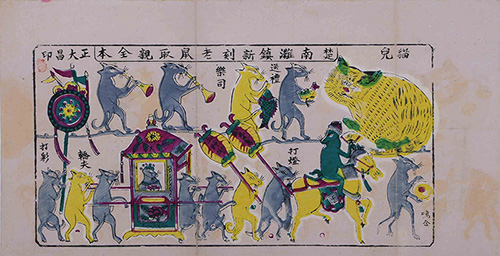 貓兒
楚南灘鎮新到老鼠取親全本
正大昌印
送禮
樂司
打燈
轎夫
打彩
鳴金